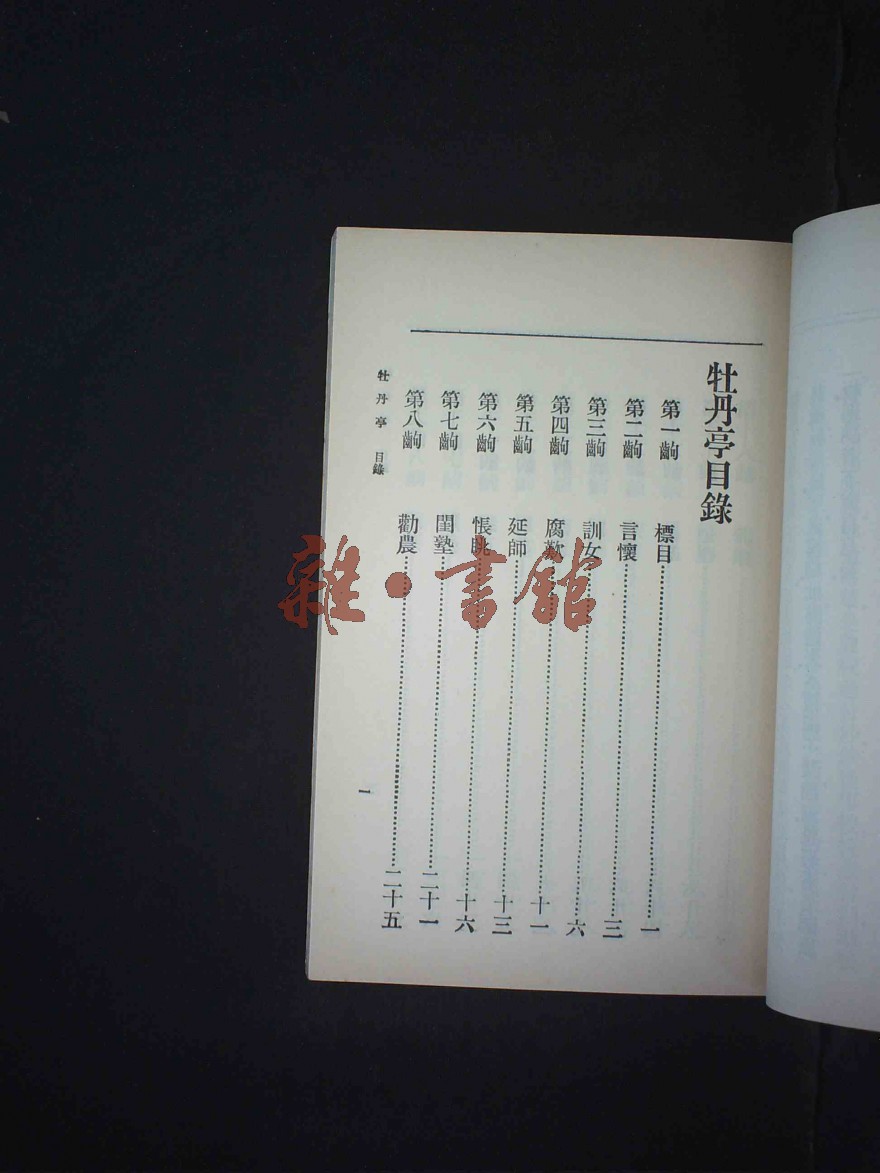 牡丹亭目錄
第一齣 標目 一
第二齣 言懷 三
第三齣 訓女 六
第四齣 腐歎 十一
第五齣 延師 十三
第六齣 悵眺 十六
第七齣 閨塾 二十一
第八齣 勸農 二十五
牡丹亭 目錄
一
雜·書館